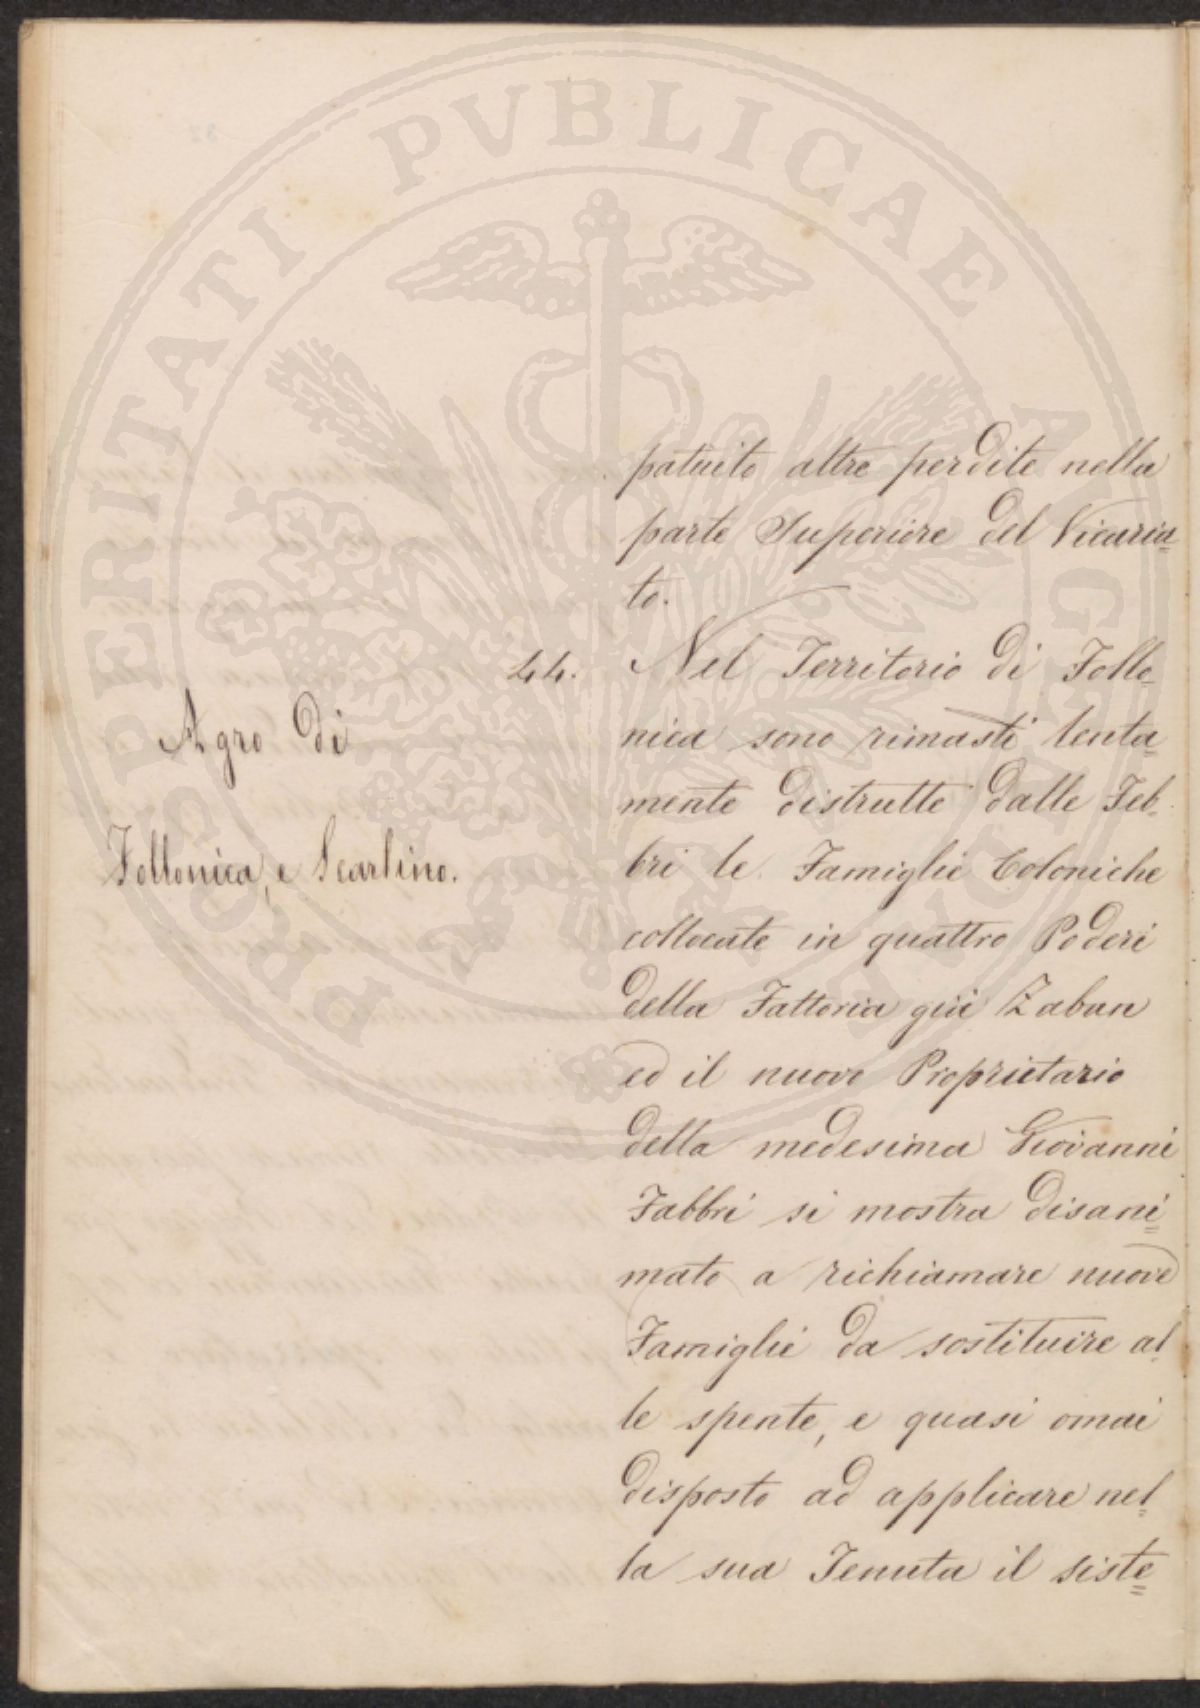 PROSPERITATI PVBLICAE AVGENDAE
patuito altre perdite nella
parte Superiore del Vicaria=
to.
44. Nel Territorio di Follo=
Agro di
nica sono rimasti lenta=
mente distrutte dalle Feb=
Follonica, e Scarlino.
bri le Famiglie Coloniche
collocate in quattro Poderi
della Fattoria giù Zaban
ed il nuovo Proprietario
della medesima Giovanni
Fabbri si mostra disani=
mato a richiamare nuove
Famiglie da sostituire al=
le spente, e quasi omai
disposto ad applicare nel=
la sua Tenuta il siste=